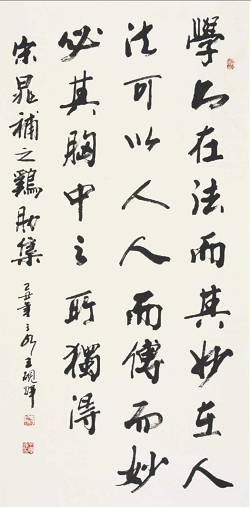 學书在法而其妙在人
法可以人人而傳而妙
必其胸中之所獨得
宋晁補之鷄肋集
己丑年